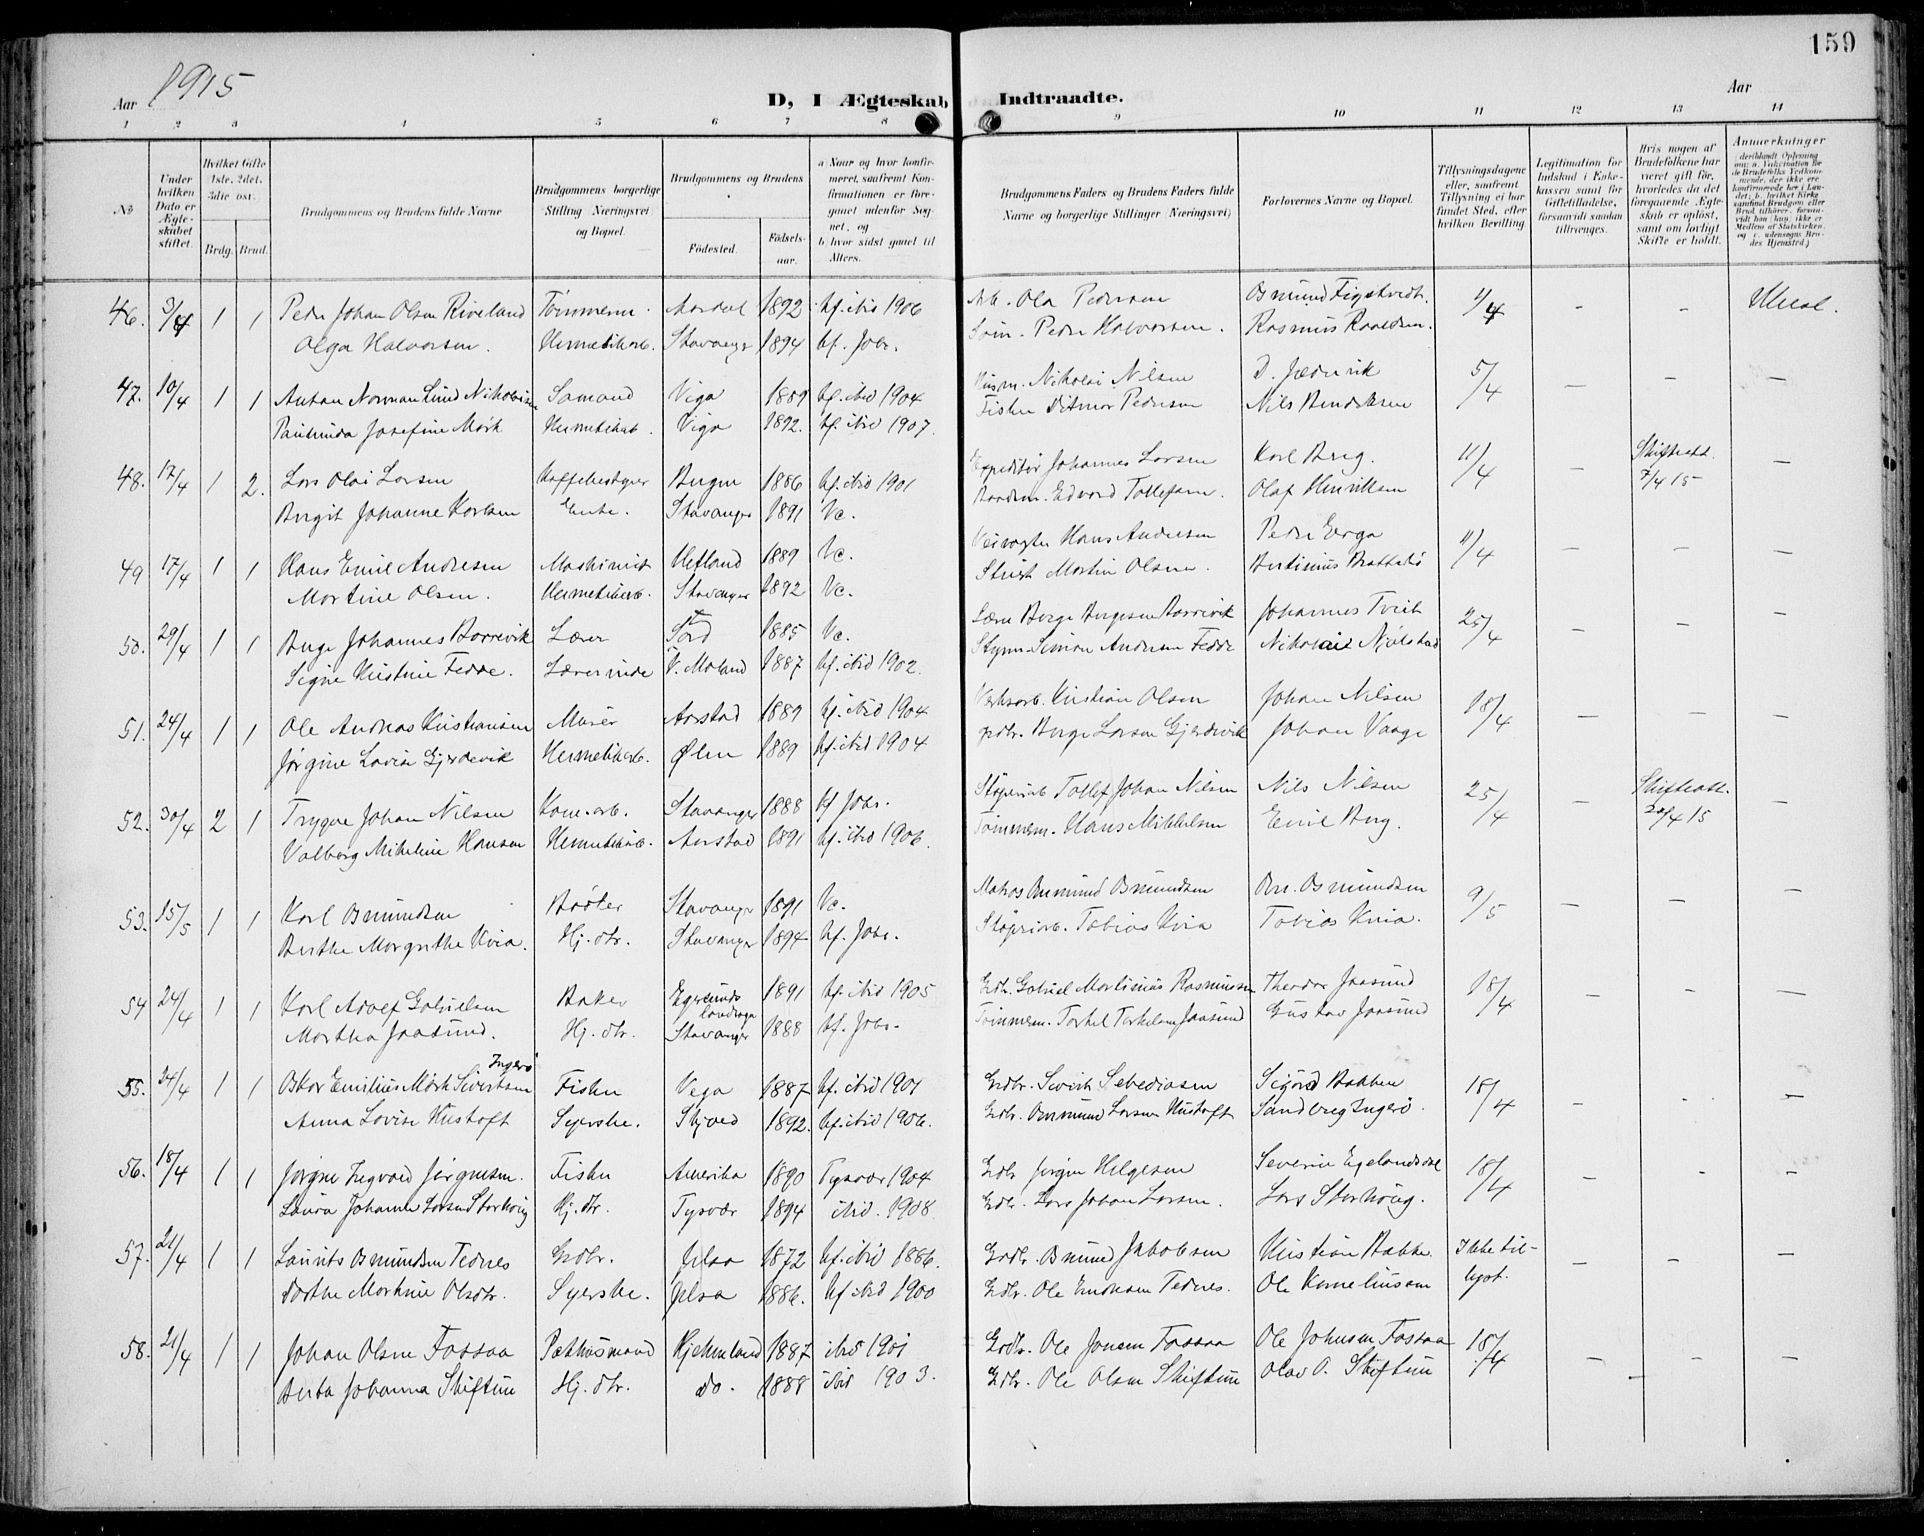 159
Aar 1915
D, I Ægteskab Indtraadte.
Aar
1 2 3 4 5 6 7 8 9 10 11 12 13 14
No
Under hvilken Dato er Ægteskabet stiftet.
Hvilket Gifte 1ste, 2det, 3die osv.
Brdg. Brud.
Brudgommens og Brudens fulde Navne
Brudgommens borgerlige Stilling Næringsvei og Bopæl.
Brudgommens og Brudens
Fødested.
Fødselsaar.
a Naar og hvor konfirmeret, saafremt Konfirmationen er foregaaet udenfor Sognet, og
b. hvor sidst gaaet til Alters.
Brudgommens Faders og Brudens Faders fulde Navne og borgerlige Stillinger (Næringsvei)
Forlovernes Navne og Bopæl.
Tillysningsdagene eller, saafremt Tillysning ei har fundet Sted, efter hvilken Bevilling.
Legitimation for Indskud i Enkekassen samt for Giftetilladelse, forsaavidt saadan tiltrænges.
Hvis nogen af Brudefolkene har været gift før, hvorledes da det foregaaende Ægteskab er opløst, samt om lovligt Skifte er holdt.
Anmærkninger
46. 3/4 1 1 Peder Johan Olsen Riveland Tømmerm. Aardal 1892 kf. ibid 1906 Arb. Ola Pedersen Osmund Figstvedt. 1/4 - -
Olga Halvorsen. Hermetikarb. Stavanger 1894 kf. Johs. Peder Halvorsen. Rasmus Raaldsen.
47. 10/4 1 1 Anton Norman Lund Nikolaisen Sømand Vega 1889 kf. ibid 1904 Husm. Nikolai Nilsen D. Jædervik 5/4 — — —
Paulinda Josefine Mørk Hermetikarb. Vega 1892. kf. ibid 1907. Fisker Ditmar Pedersen Nils Bendiksen
48. 17/4 1 2. Lars Olai Larsen Kaffebestyrer Bergen 1886 kf. ibid 1901 Expeditør Johannes Larsen Karl Berg. 11/4 — Skifteatt. —
Birgit Johanne Karlsen Enke. Stavanger 1891 Vc. Edvard Tollefsen. Olaf Henriksen 7/4 15
49 17/4 1 1 Hans Emil Andersen Maskinist Hetland 1889 Vc. Veivogter Hans Andersen Peder Erga 11/4 — — —
Martine Olsen. Hermetikarb. Stavanger 1892 Vc. Martin Olsen. Bertinius Brattebø
50. 29/4 1 1 Berge Johannes Borrevik Lærer Fjord 1885 Vc. Lærer Berge Bergesen Borrevik Johannes Tveit 25/4 — — —
Signe Kristine Fedde. Lærerinde V. Moland 1887 kf. ibid 1902. Styrm. Simon Andreas Fedde Nikolai Njølstad
51. 24/4 1 1 Ole Andreas Kristiansen Murer Aarstad 1889 kf. ibid 1904 Verksarb. Kristian Olsen Johan Nilsen 18/4 — — —
Jørgine Lovise Gjerdevik Hermetikarb. Ølen 1889 kf. ibid 1904 grdbr. Berge Larsen Gjerdevik Johan Vaage
52. 30/4 2 1 Trygve Johan Nilsen Kom. arb. Stavanger 1888 kf Johs. Støperiarb Tollef Johan Nilsen Nils Nilsen 25/4 — Skifteatt. —
Valborg Mikeline Hansen Hermetikarb. Aarstad 1891 kf. ibid 1906. Tømmerm. Hans Mikkelsen Emil Berg. 20/4 15
53. 15/5 1 1 Karl Osmundsen Bøtker Stavanger 1891 Vc. Matros Osmund Osmundsen Osmundsen 9/5 — — —
Berthe Margrethe Kvia. Hj. dtr. Stavanger 1894 kf. Johs. Støperiarb. Tobias Kvia Tobias Kvia.
54 24/4 1 1 Karl Adolf Gabrielsen Baker Egersunds landsogn 1891 kf. ibid 1905 Grdbr. Gabriel Martinius Rasmussen Theodor Jaasund 18/4 — — —
Martha Jaasund. Hj. dtr. Stavanger 1888 kf. Johs. Tømmerm. Torkel Torkelsen Jaasund Gustav Jaasund
55. 24/4 1 1 Oskar Emilius Mørk Sivertsen Ingerø Fisker Vega 1887 kf. ibid 1901 Grdbr. Sivert Sebediasen Sigurd Bakken 18/4 — - —
Anna Lovise Hustoft Syerske. Skjold 1892. kf. ibid 1906. Grdbr. Osmund Larsen Hustoft Sandberg Ingerø.
56. 18/4 1 1 Jørgen Ingvald Jørgensen. Fisker Amerika 1890 Tysvær 1904 Grdbr Jørgen Helgesen Severin Egelandsdal 18/4 — - —
Laura Johanne Larsen Storhoug Hj. dtr. Tysvær 1894 ibid. 1908. Grdbr. Lars Johan Larsen. Lars Storhoug.
57. 21/4 1 1 Laurits Osmundsen Tednes Grdbr. Jelsa 1872 kf. ibid 1886. Grdbr. Osmund Jakobsen Kristian Bakke Ikke til- — — —
Dorthe Martine Olsdtr. Syerske. Jelsa 1886. kf ibid 1900 Grdbr. Ole Endresen Tednes. Ole Korneliussen lyst.
58. 21/4 1 1 Johan Olsen Fossaa Pakhusmand Hjelmeland 1887 ibid 1901 Grdbr. Ole Jonsen Fossaa Ole Johnsen Fossaa 18/4 — — —
Berta Johanna Skiftun Hj. dtr. do. 1888 ibid 1903. Grdbr. Ole Olsen Skiftun Olav O. Skiftun